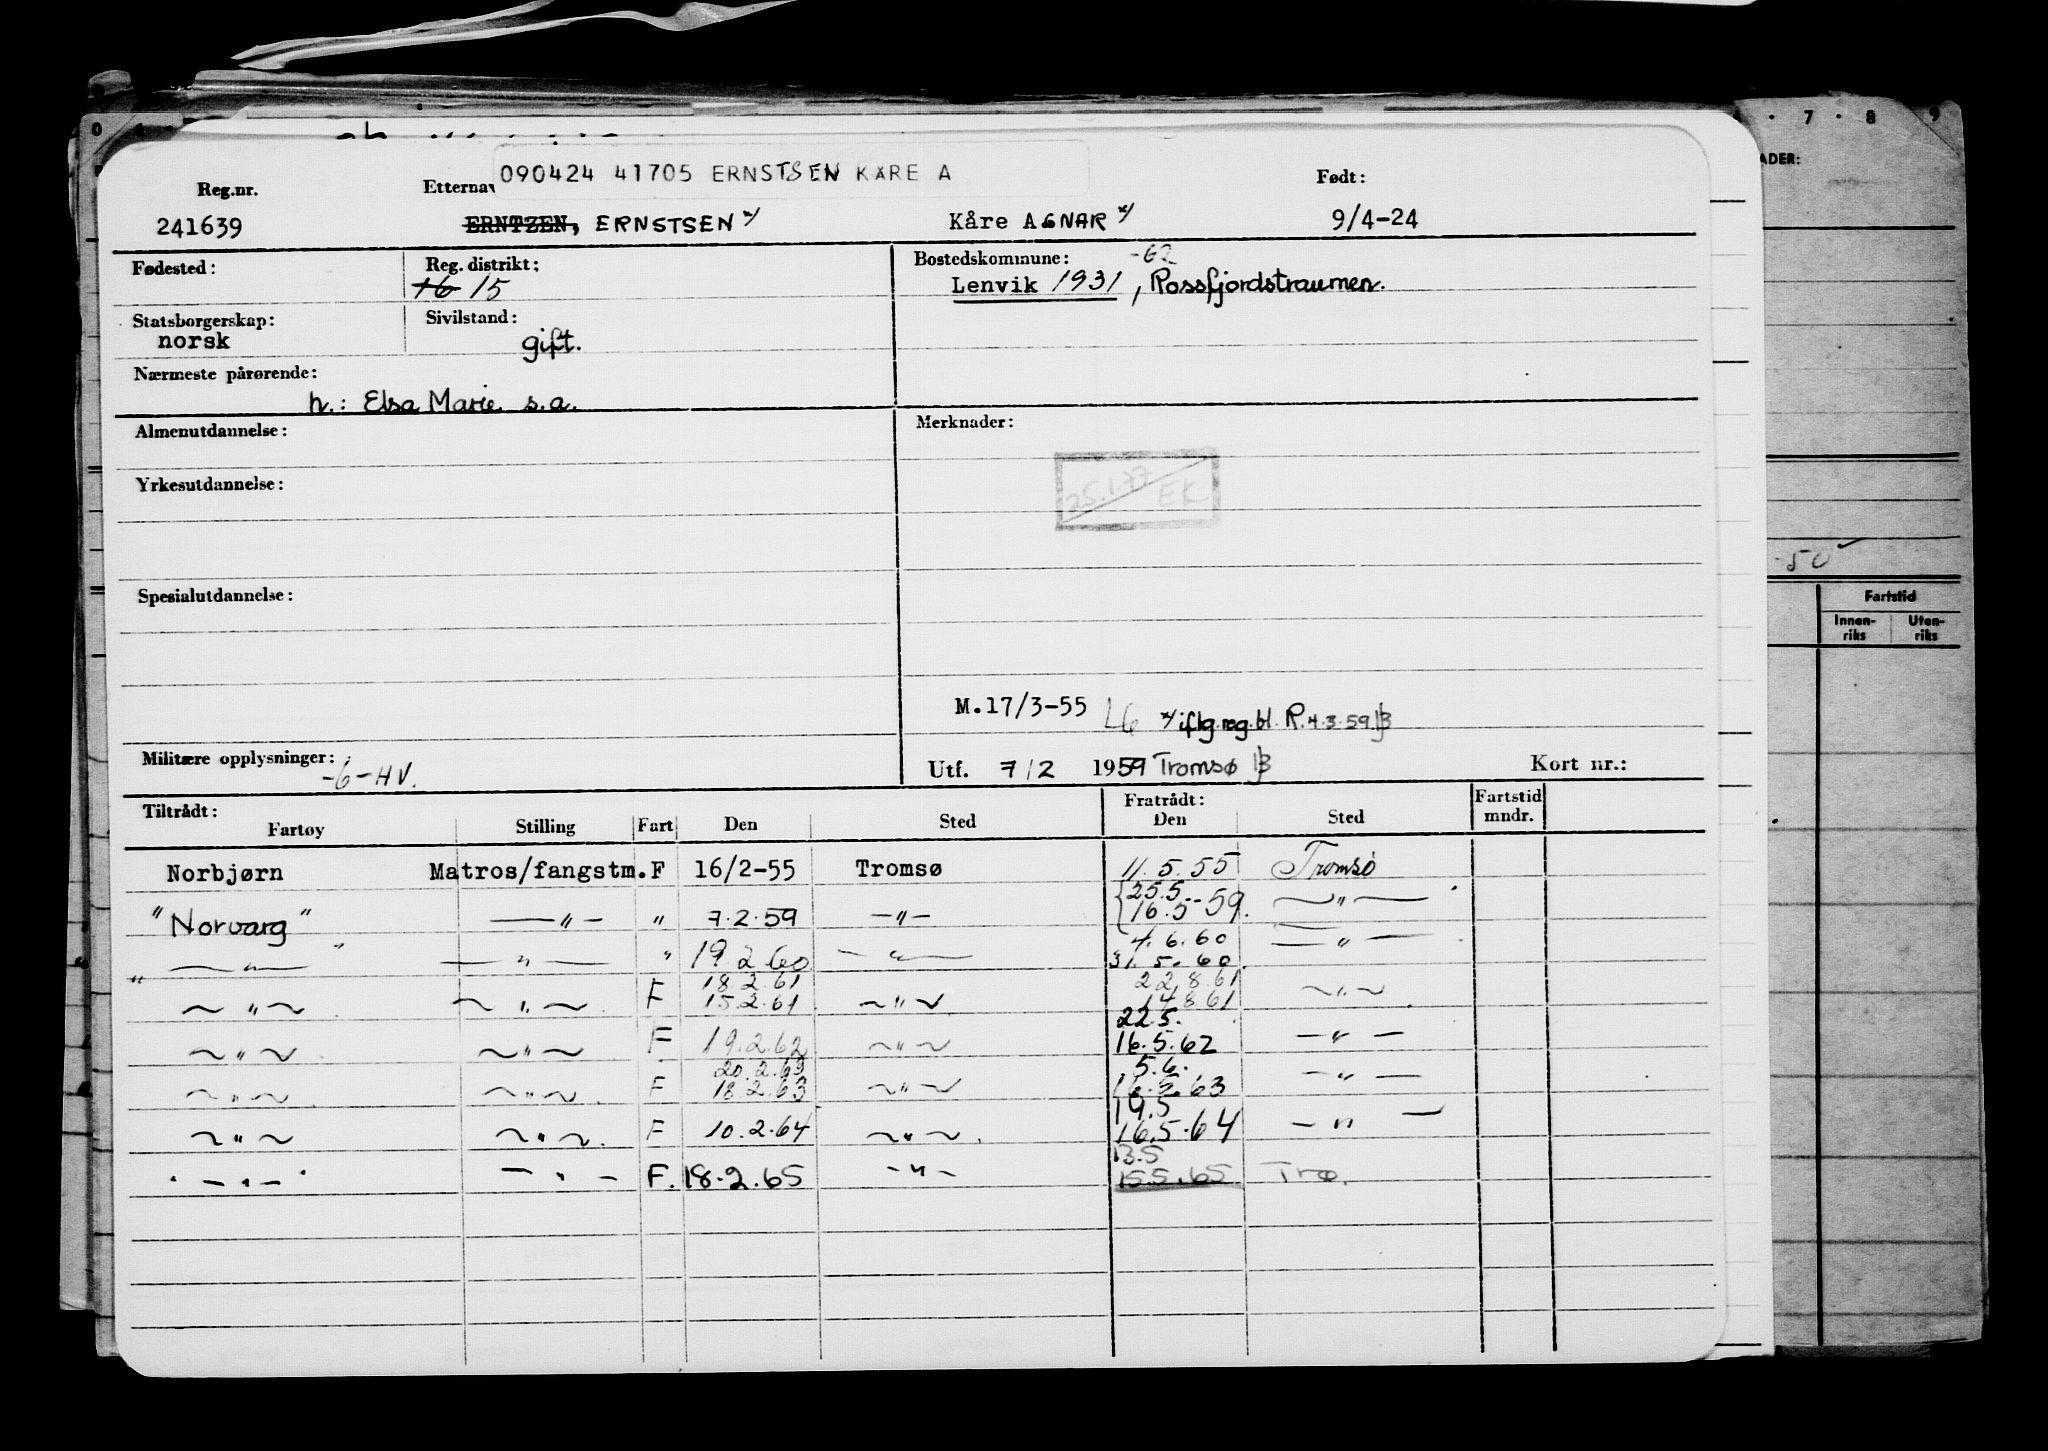 090424 41705 ERNSTSEN KÅRE A
Reg.nr. Etternav Født:
241639 ERNTZEN, ERNSTSEN x/ Kåre AGNAR x/ 9/4-24
Fødested: Reg. distrikt: Bostedskommune: -62
16 15 Lenvik 1931, Rossfjordstraumen.
Statsborgerskap: Sivilstand:
norsk gift.
Nærmeste pårørende:
h.: Elsa Marie s.a.
Almenutdannelse: Merknader:
25.1.77 EK
Yrkesutdannelse:
Spesialutdannelse:
M.17/3-55 LG x/ iflg. reg. bl. R. 4.3.59
Militære opplysninger: -6-HV. Utf. 7/2 1959 Tromsø Kort nr.:
Tiltrådt: Fratrådt: Fartstid
Fartøy Stilling Fart Den Sted Den Sted mndr.
Norbjørn Matros/fangstm. F 16/2-55 Tromsø 11.5.55 Tromsø
25.5.
"Norvarg" —"— " 7.2.59 —"— 16.5-59. —"—
4.6.60
—"— —"— " 19 2 60 —"— 31.5.60 —"—
18.2.61 22.8.61
—"— —"— F 15.2.61 —"— 14.8.61 —"—
22.5.
—"— —"— F 19.2.62 —"— 16.5.62 —"—
20.2.63 5.6.
—"— —"— F 18.2.63 —"— 16.5.63 —"—
19.5
—"— —"— F 10.2.64 —"— 16.5.64 —"—
13.5
—"— —"— F. 18.2.65 —"— 15.5.65 Trø.
0 7 8 9
ADER:
-50
Fartstid
Innen-
riks
Uten-
riks